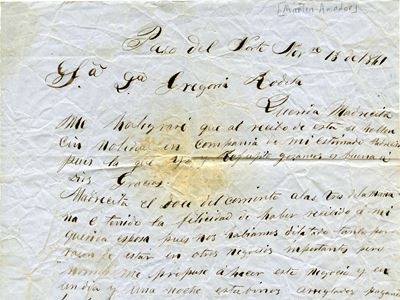 [Martin Amador]
Paso del Norte 18 de 1861
Sª Dª Gregori Rodela
Querida Madrecita
Me halegraré que al recibo de esta se hallen
Sin nobedad en compañia de mi estimado
pues la que yo y gozamos es buena a
Dios Gracias.
Madrecita el doce del corriente a las tres de la maña
na e tenido la felicidad de haber recibido a mi
querida esposa pues nos habiamos dilatado tanto por
razon de estar en otros negocios importantes pero
me propuse a hacer este negocio y en
un dia y una noche estubimos arreglados